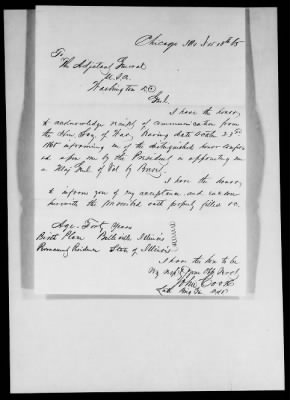 Chicago Ills Nov 18th 65
To
The Adjutant General
U.S.A.
Washington D.C.
Genl.
I have the honor
to acknowledge receipt of communication from
the Hon Secy of War, bearing date
1865 informing me of the distinguished honor confer
ed upon me by the President in appointing me
a Maj Genl of Vol by Brevet.
I have the honor
to inform you of my acceptance and return
herewith the prescribed oath properly filled &c.
Age - Forty Years
Birth Place Belleville Illinois
Permanent Residence State of Illinois
I have the honor to be
Very
John Cook
Late Brig Gen